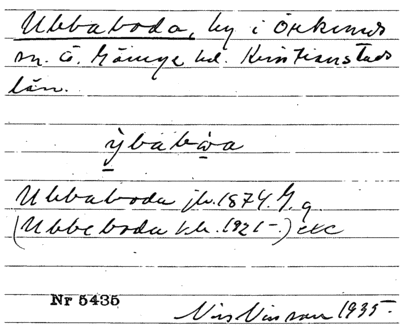 Ubbaboda, by i Örkeneds
sn. Ö. Göinge hd. Kristianstads
län.
ỳbabωa
Ubbaboda jb. 1874. G. q
(Ubbeboda kb. 1921-) etc
Nr 5435
1935.